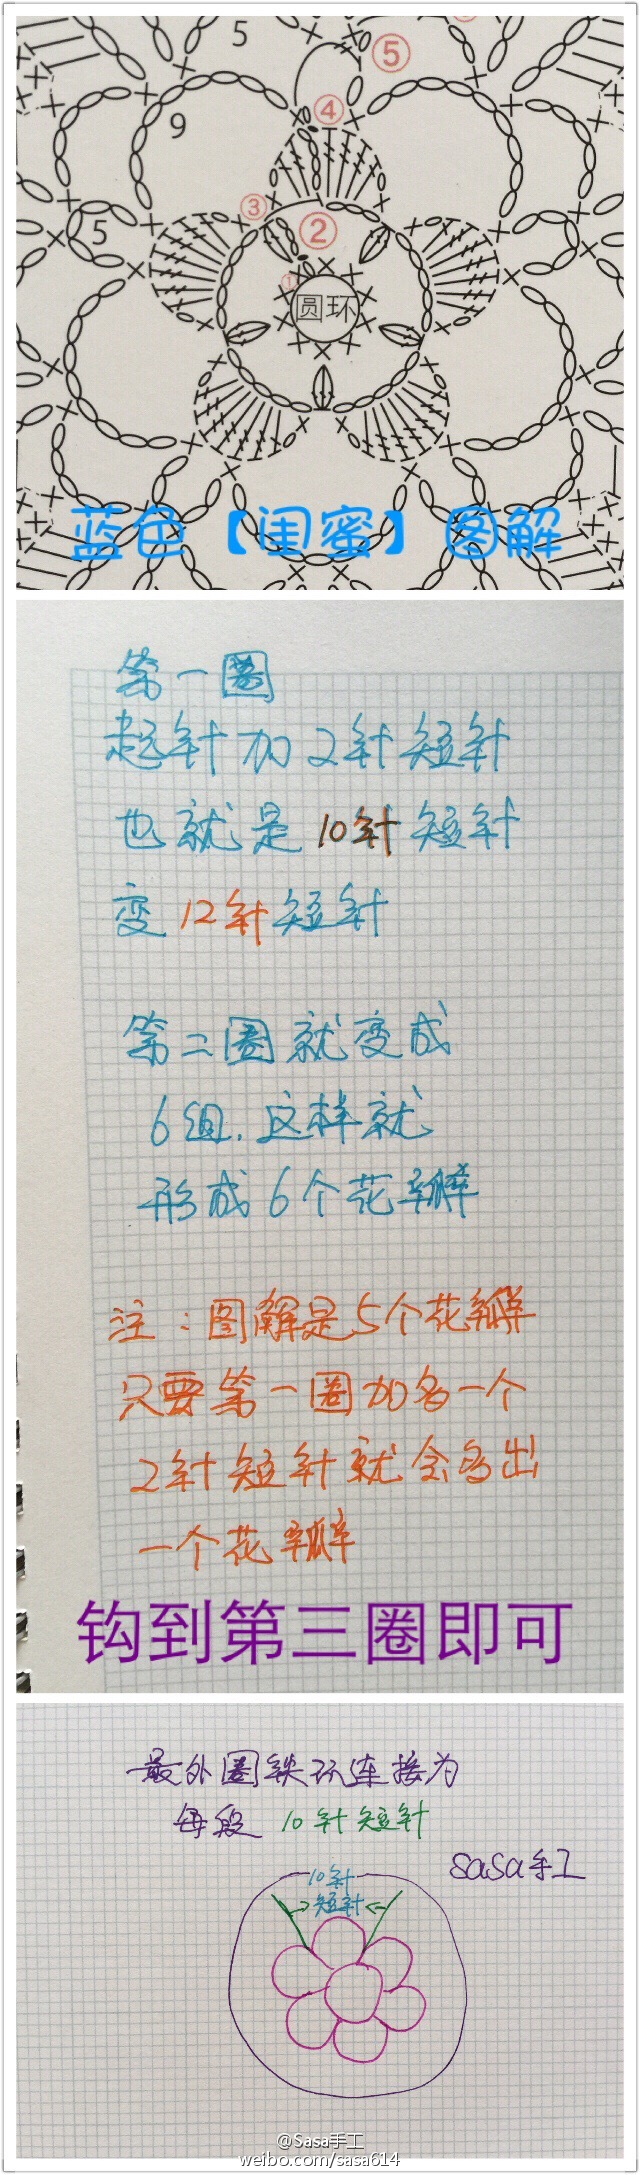 5
⑤
9
④
③
5
②
①
圆环
蓝色【闺蜜】图解
第一圈
起针加2针短针
也就是10针短针
变12针短针
第二圈就变成
6组.这样就
形成6个花瓣
注:图解是5个花瓣
只要第一圈加多一个
2针短针就会多出
一个花瓣
钩到第三圈即可
最外圈铁环连接为
每段10针短针
sasa手工
10针
短针
@Sasa手工
weibo.com/sasa614